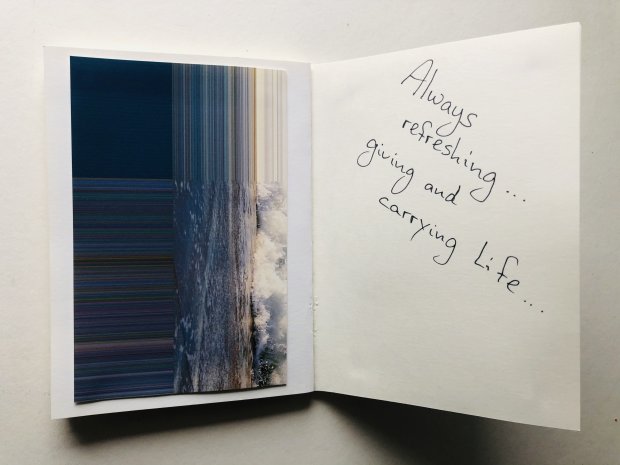 Always
refreshing...
giving and
carrying Life....